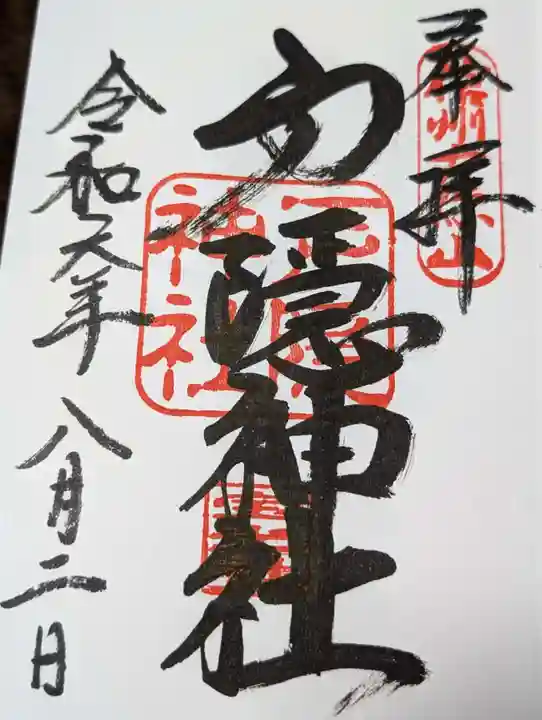 奉拝
信州戸隠山
戸隠神社
令和六年八月二日